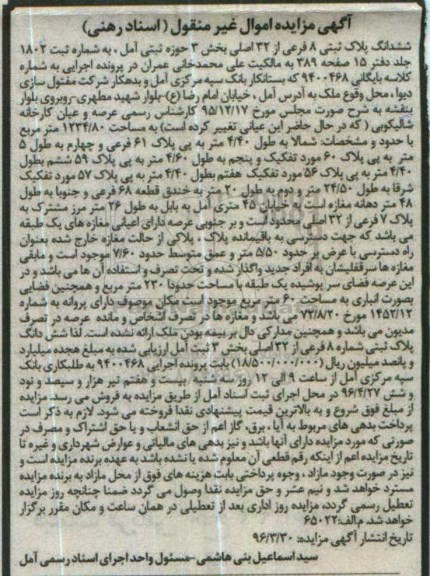 آگهی مزایده اموال غیر منقول (اسناد رهنی)
ششدانگ پلاک ثبتی ۸ فرعی از ۳۲ اصلی بخش ۳ حوزه ثبتی آمل ، به شماره ثبت ۱۸۰۲
جلد دفتر ۱۵ صفحه ۳۸۹ به مالکیت علی محمدخانی عمران در پرونده اجرایی به شماره
کلاسه بایگانی ۹۴۰۰۴۶۸ که بستانکار بانک سپه مرکزی آمل و بدهکار شرکت مفتول سازی
دیوا ، محل وقوع ملک به آدرس آمل ، خیابان امام رضا (ع)-بلوار شهید مطهری-روبروی بلوار
بنفشه به شرح صورت مجلس مورخ ۹۵/۱۲/۱۷ کارشناس رسمی عرصه و عیان کارخانه
شالیکوبی ( که در حال حاضر این عیانی تغییر کرده است) به مساحت ۱۲۳۴/۸۰ متر مربع
با حدود و مشخصات: شمالا به طول ۴/۴۰ متر به پی پلاک ۶۱ فرعی و چهارم به طول ۵
متر به پی پلاک ۶۰ مورد تفکیک و پنجم به طول ۴/۶۰ متر به پی پلاک ۵۹ ششم بطول
۴/۴۰ متر به پی پلاک ۵۶ مورد تفکیک هفتم بطول ۴/۴۰ متر به پی پلاک ۵۷ مورد تفکیک
شرقا به طول ۲۴/۵۰ متر و دوم به طول ۲۰ متر به خندق قطعه ۶۸ فرعی و جنوبا به طول
۴۸ متر دهانه مغازه است به خیابان ۴۵ متری آمل به بابل به طول ۲۶ متر مرز مشترک به
پلاک ۷ فرعی از ۳۲ اصلی محدود است و بر جنوبی عرصه دارای اعیانی مغازه های یک طبقه
می باشد که جهت دسترسی به باقیمانده پلاک ، پلاکی از حالت مغازه خارج شده بعنوان
راه دسترسی با عرض بر حدود ۵/۵۰ متر و عمق متوسط حدود ۷/۶۰ موجود است و مابقی
مغازه ها سرقفلیشان به افراد جدید واگذار شده و تحت تصرف و استفاده آن ها می باشد و در
این عرصه فضای سر پوشیده یک طبقه با مساحت حدودا ۲۳۰ متر مربع و همچنین فضایی
بصورت انباری به مساحت ۶۰ متر مربع موجود است مکان موصوف دارای پروانه به شماره
۱۴۵۲/۱۲ مورخ ۷۲/۸/۲۰ می باشد و مغازه ها در تصرف اشخاص و مانده عرصه در تصرف
مدیون می باشد و همچنین مدارکی دال بر بیمه بودن ملک ارائه نشده است. لذا شش دانگ
پلاک ثبتی شماره ۸ فرعی از ۳۲ اصلی بخش ۳ ثبت آمل ارزیابی شده به مبلغ هجده میلیارد
و پانصد میلیون ریال (۱۸/۵۰۰/۰۰۰/۰۰۰) بابت پرونده اجرایی ۹۴۰۰۴۶۸ به طلبکاری بانک
سپه مرکزی آمل از ساعت ۹ الی ۱۲ روز سه شنبه بیست و هفتم تیر هزار و سیصد و نود
و شش ۹۶/۴/۲۷ در محل اجرای ثبت اسناد آمل از طریق مزایده به فروش می رسد. مزایده
از مبلغ فوق شروع و به بالاترین قیمت پیشنهادی نقدا فروخته می شود. لازم به ذکر است
پرداخت بدهی های مربوط به آب، برق، گاز اعم از حق انشعاب و یا حق اشتراک و مصرف در
صورتی که مورد مزایده دارای آنها باشد و نیز بدهی های مالیاتی و عوارض شهرداری و غیره تا
تاریخ مزایده اعم از اینکه رقم قطعی آن معلوم شده یا نشده باشد به عهده برنده مزایده است و
نیز در صورت وجود مازاد ، وجوه پرداختی بابت هزینه های فوق از محل مازاد به برنده مزایده
مسترد خواهد شد و نیم عشر و حق مزایده نقدا وصول می گردد ضمنا چنانچه روز مزایده
تعطیل رسمی گردد، مزایده روز اداری بعد از تعطیلی در همان ساعت و مکان مقرر برگزار
خواهد شد. م.الف:۶۵۰۲۲
تاریخ انتشار آگهی مزایده: ۹۶/۳/۳۰
سید اسماعیل بنی هاشمی-مسئول واحد اجرای اسناد رسمی آمل